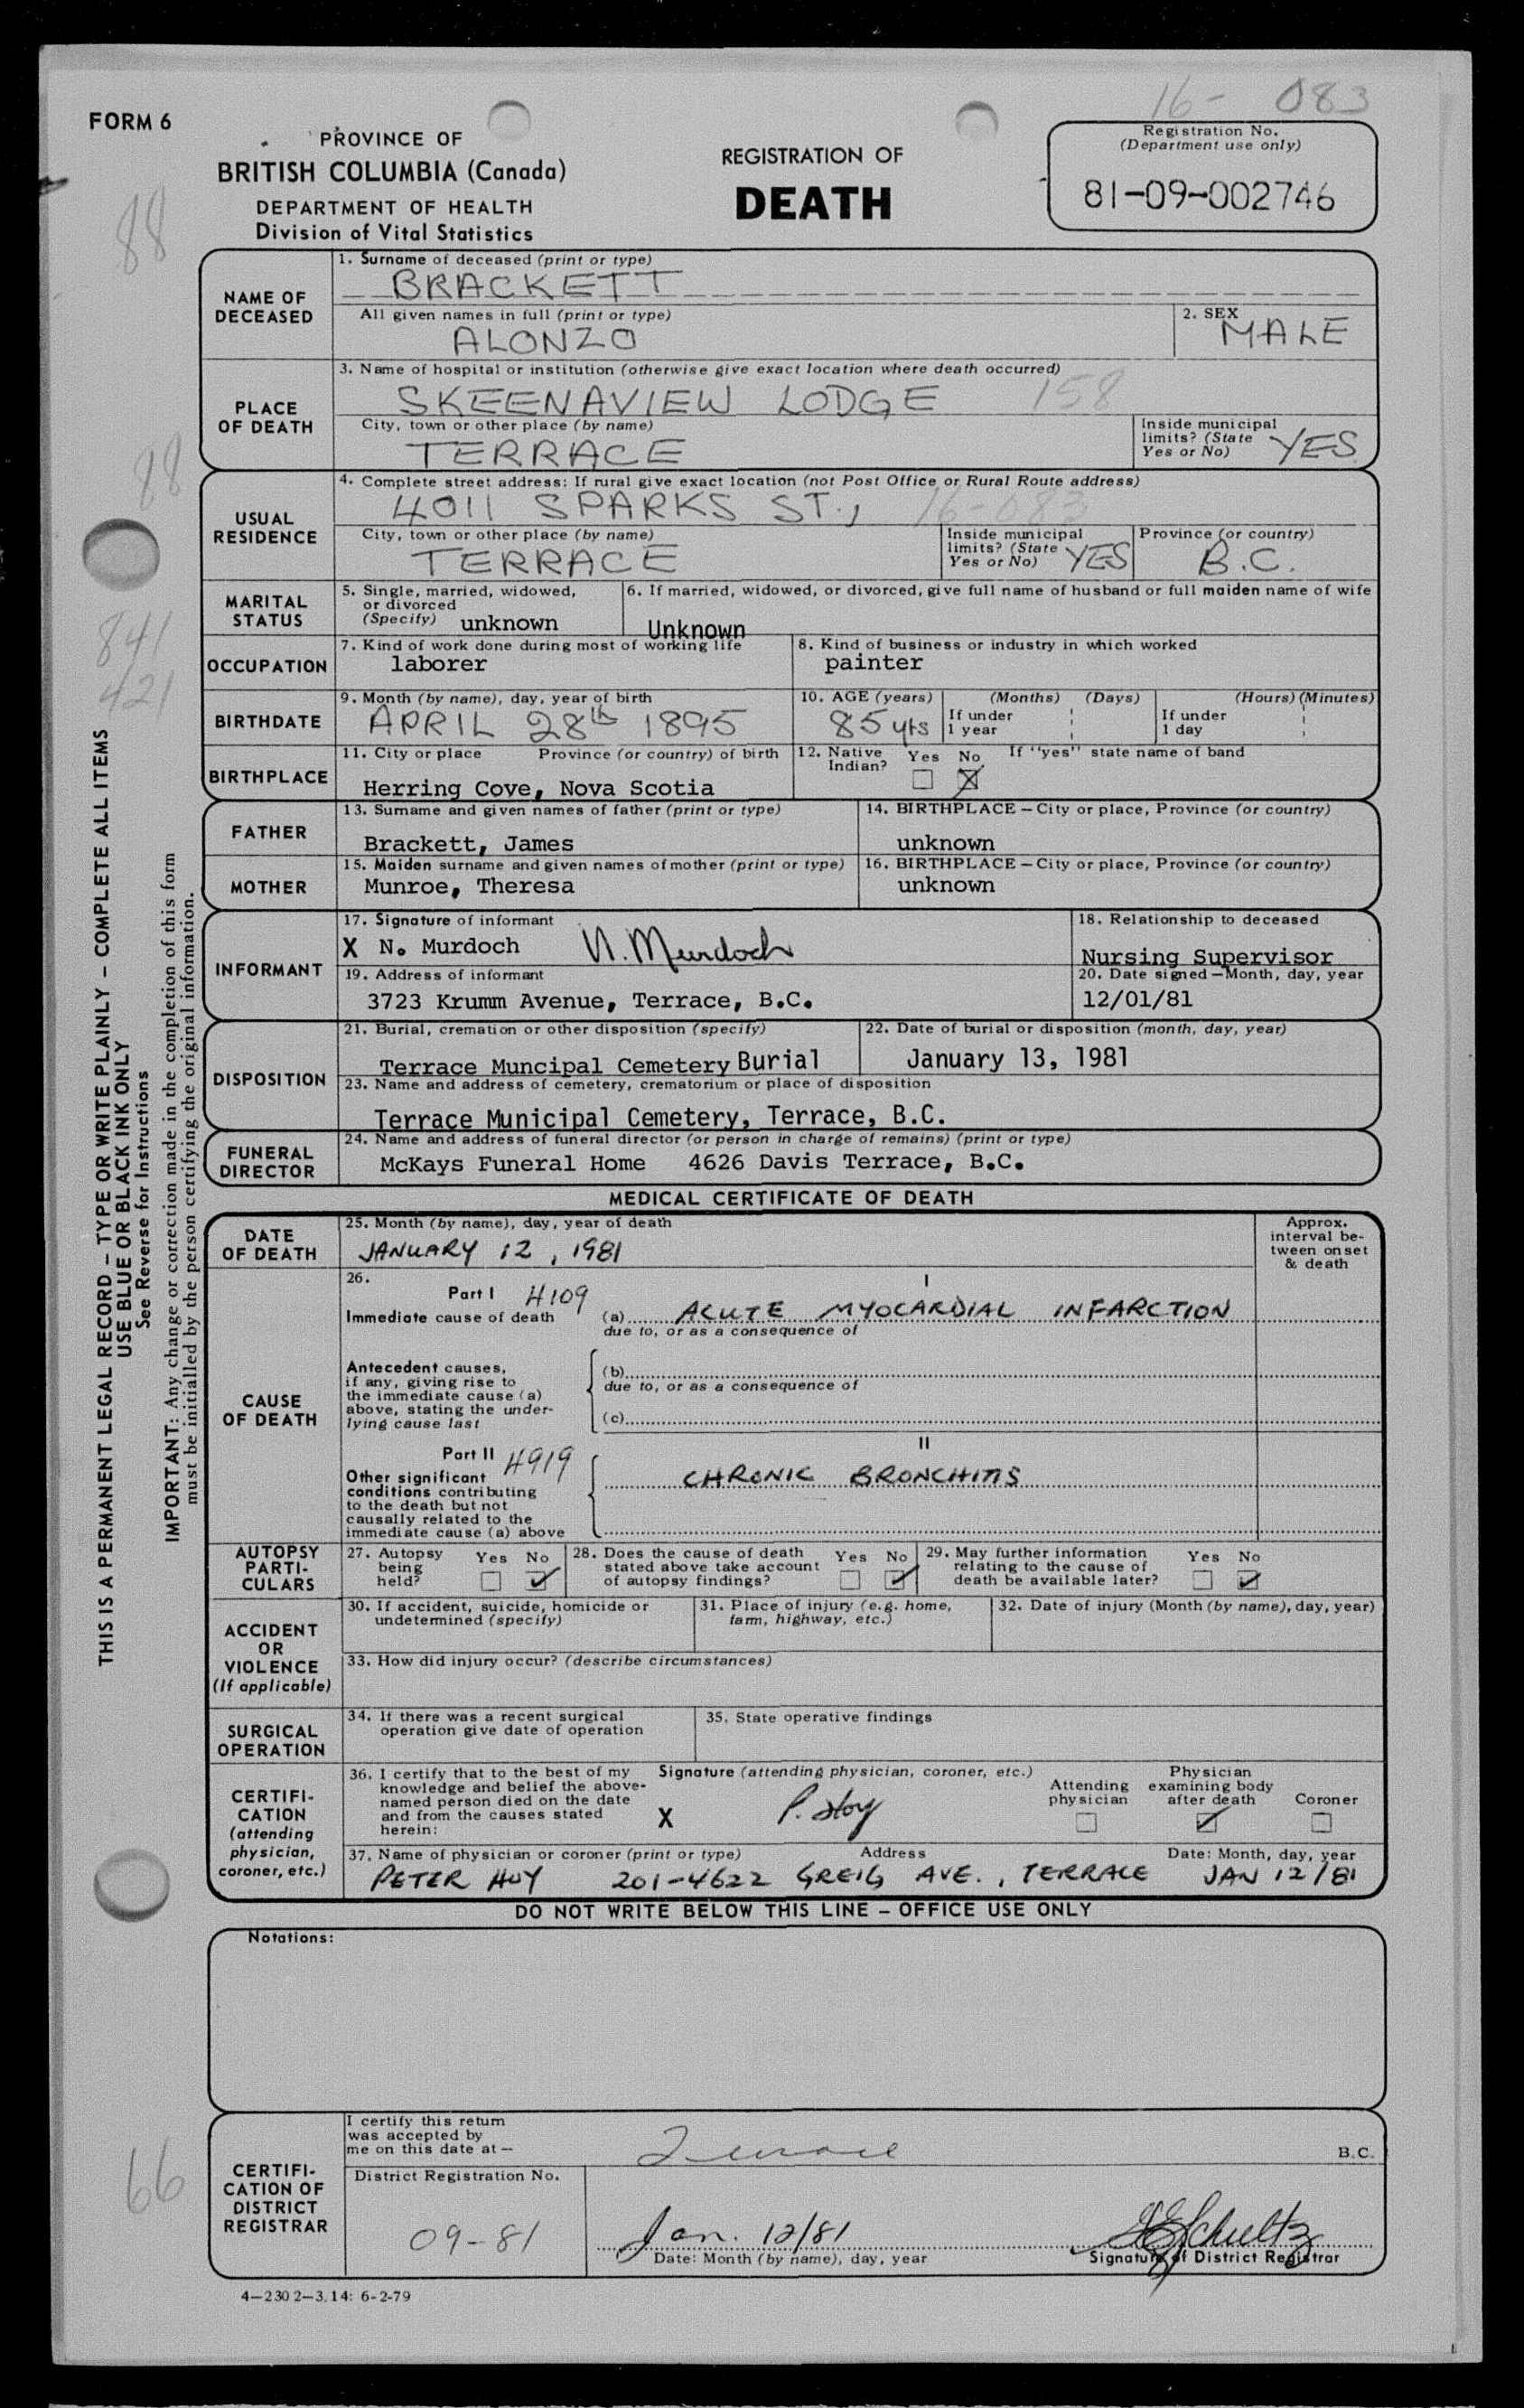 16- 083
FORM 6
PROVINCE OF
BRITISH COLUMBIA (Canada)
DEPARTMENT OF HEALTH
Division of Vital Statistics
REGISTRATION OF
DEATH
Registration No.
(Department use only)
81-09-002746
88
NAME OF DECEASED
1. Surname of deceased (print or type)
BRACKETT
All given names in full (print or type)
ALONZO
2. SEX
MALE
PLACE OF DEATH
3. Name of hospital or institution (otherwise give exact location where death occurred)
SKEENAVIEW LODGE 158
City, town or other place (by name)
TERRACE
Inside municipal limits? (State Yes or No) YES
88
USUAL RESIDENCE
4. Complete street address: If rural give exact location (not Post Office or Rural Route address)
4011 SPARKS ST., 16-083
City, town or other place (by name)
TERRACE
Inside municipal limits? (State Yes or No) YES
Province (or country)
B.C.
841
421
MARITAL STATUS
5. Single, married, widowed, or divorced (Specify) unknown
6. If married, widowed, or divorced, give full name of husband or full maiden name of wife
Unknown
OCCUPATION
7. Kind of work done during most of working life
laborer
8. Kind of business or industry in which worked
painter
BIRTHDATE
9. Month (by name), day, year of birth
APRIL 28th 1895
10. AGE (years) (Months) (Days) (Hours) (Minutes)
85 yrs If under 1 year If under 1 day
BIRTHPLACE
11. City or place Province (or country) of birth
Herring Cove, Nova Scotia
12. Native Indian? Yes No If "yes" state name of band
FATHER
13. Surname and given names of father (print or type)
Brackett, James
14. BIRTHPLACE - City or place, Province (or country)
unknown
MOTHER
15. Maiden surname and given names of mother (print or type)
Munroe, Theresa
16. BIRTHPLACE - City or place, Province (or country)
unknown
INFORMANT
17. Signature of informant
X N. Murdoch N. Murdoch
18. Relationship to deceased
Nursing Supervisor
19. Address of informant
3723 Krumm Avenue, Terrace, B.C.
20. Date signed - Month, day, year
12/01/81
DISPOSITION
21. Burial, cremation or other disposition (specify)
Terrace Muncipal Cemetery Burial
22. Date of burial or disposition (month, day, year)
January 13, 1981
23. Name and address of cemetery, crematorium or place of disposition
Terrace Municipal Cemetery, Terrace, B.C.
FUNERAL DIRECTOR
24. Name and address of funeral director (or person in charge of remains) (print or type)
McKays Funeral Home 4626 Davis Terrace, B.C.
THIS IS A PERMANENT LEGAL RECORD - TYPE OR WRITE PLAINLY - COMPLETE ALL ITEMS
USE BLUE OR BLACK INK ONLY
See Reverse for Instructions
IMPORTANT: Any change or correction made in the completion of this form
must be initialled by the person certifying the original information.
MEDICAL CERTIFICATE OF DEATH
DATE OF DEATH
25. Month (by name), day, year of death
JANUARY 12, 1981
Approx. interval between onset & death
CAUSE OF DEATH
26.
Part I 4109
I
Immediate cause of death
(a) ACUTE MYOCARDIAL INFARCTION
due to, or as a consequence of
Antecedent causes, if any, giving rise to the immediate cause (a) above, stating the underlying cause last
(b)
due to, or as a consequence of
(c)
Part II 4919
II
Other significant conditions contributing to the death but not causally related to the immediate cause (a) above
CHRONIC BRONCHITIS
AUTOPSY PARTICULARS
27. Autopsy being held? Yes No
28. Does the cause of death stated above take account of autopsy findings? Yes No
29. May further information relating to the cause of death be available later? Yes No
ACCIDENT OR VIOLENCE (If applicable)
30. If accident, suicide, homicide or undetermined (specify)
31. Place of injury (e.g. home, farm, highway, etc.)
32. Date of injury (Month (by name), day, year)
33. How did injury occur? (describe circumstances)
SURGICAL OPERATION
34. If there was a recent surgical operation give date of operation
35. State operative findings
CERTIFICATION (attending physician, coroner, etc.)
36. I certify that to the best of my knowledge and belief the above-named person died on the date and from the causes stated herein:
Signature (attending physician, coroner, etc.)
X P. Hoy
Attending physician
Physician examining body after death
Coroner
37. Name of physician or coroner (print or type) Address Date: Month, day, year
PETER HOY 201-4622 GREIG AVE., TERRACE JAN 12/81
DO NOT WRITE BELOW THIS LINE - OFFICE USE ONLY
Notations:
66
CERTIFICATION OF DISTRICT REGISTRAR
I certify this return was accepted by me on this date at - Terrace B.C.
District Registration No.
09-81
Jan. 12/81
Date: Month (by name), day, year
Schultz
Signature of District Registrar
4-230 2-3.14: 6-2-79